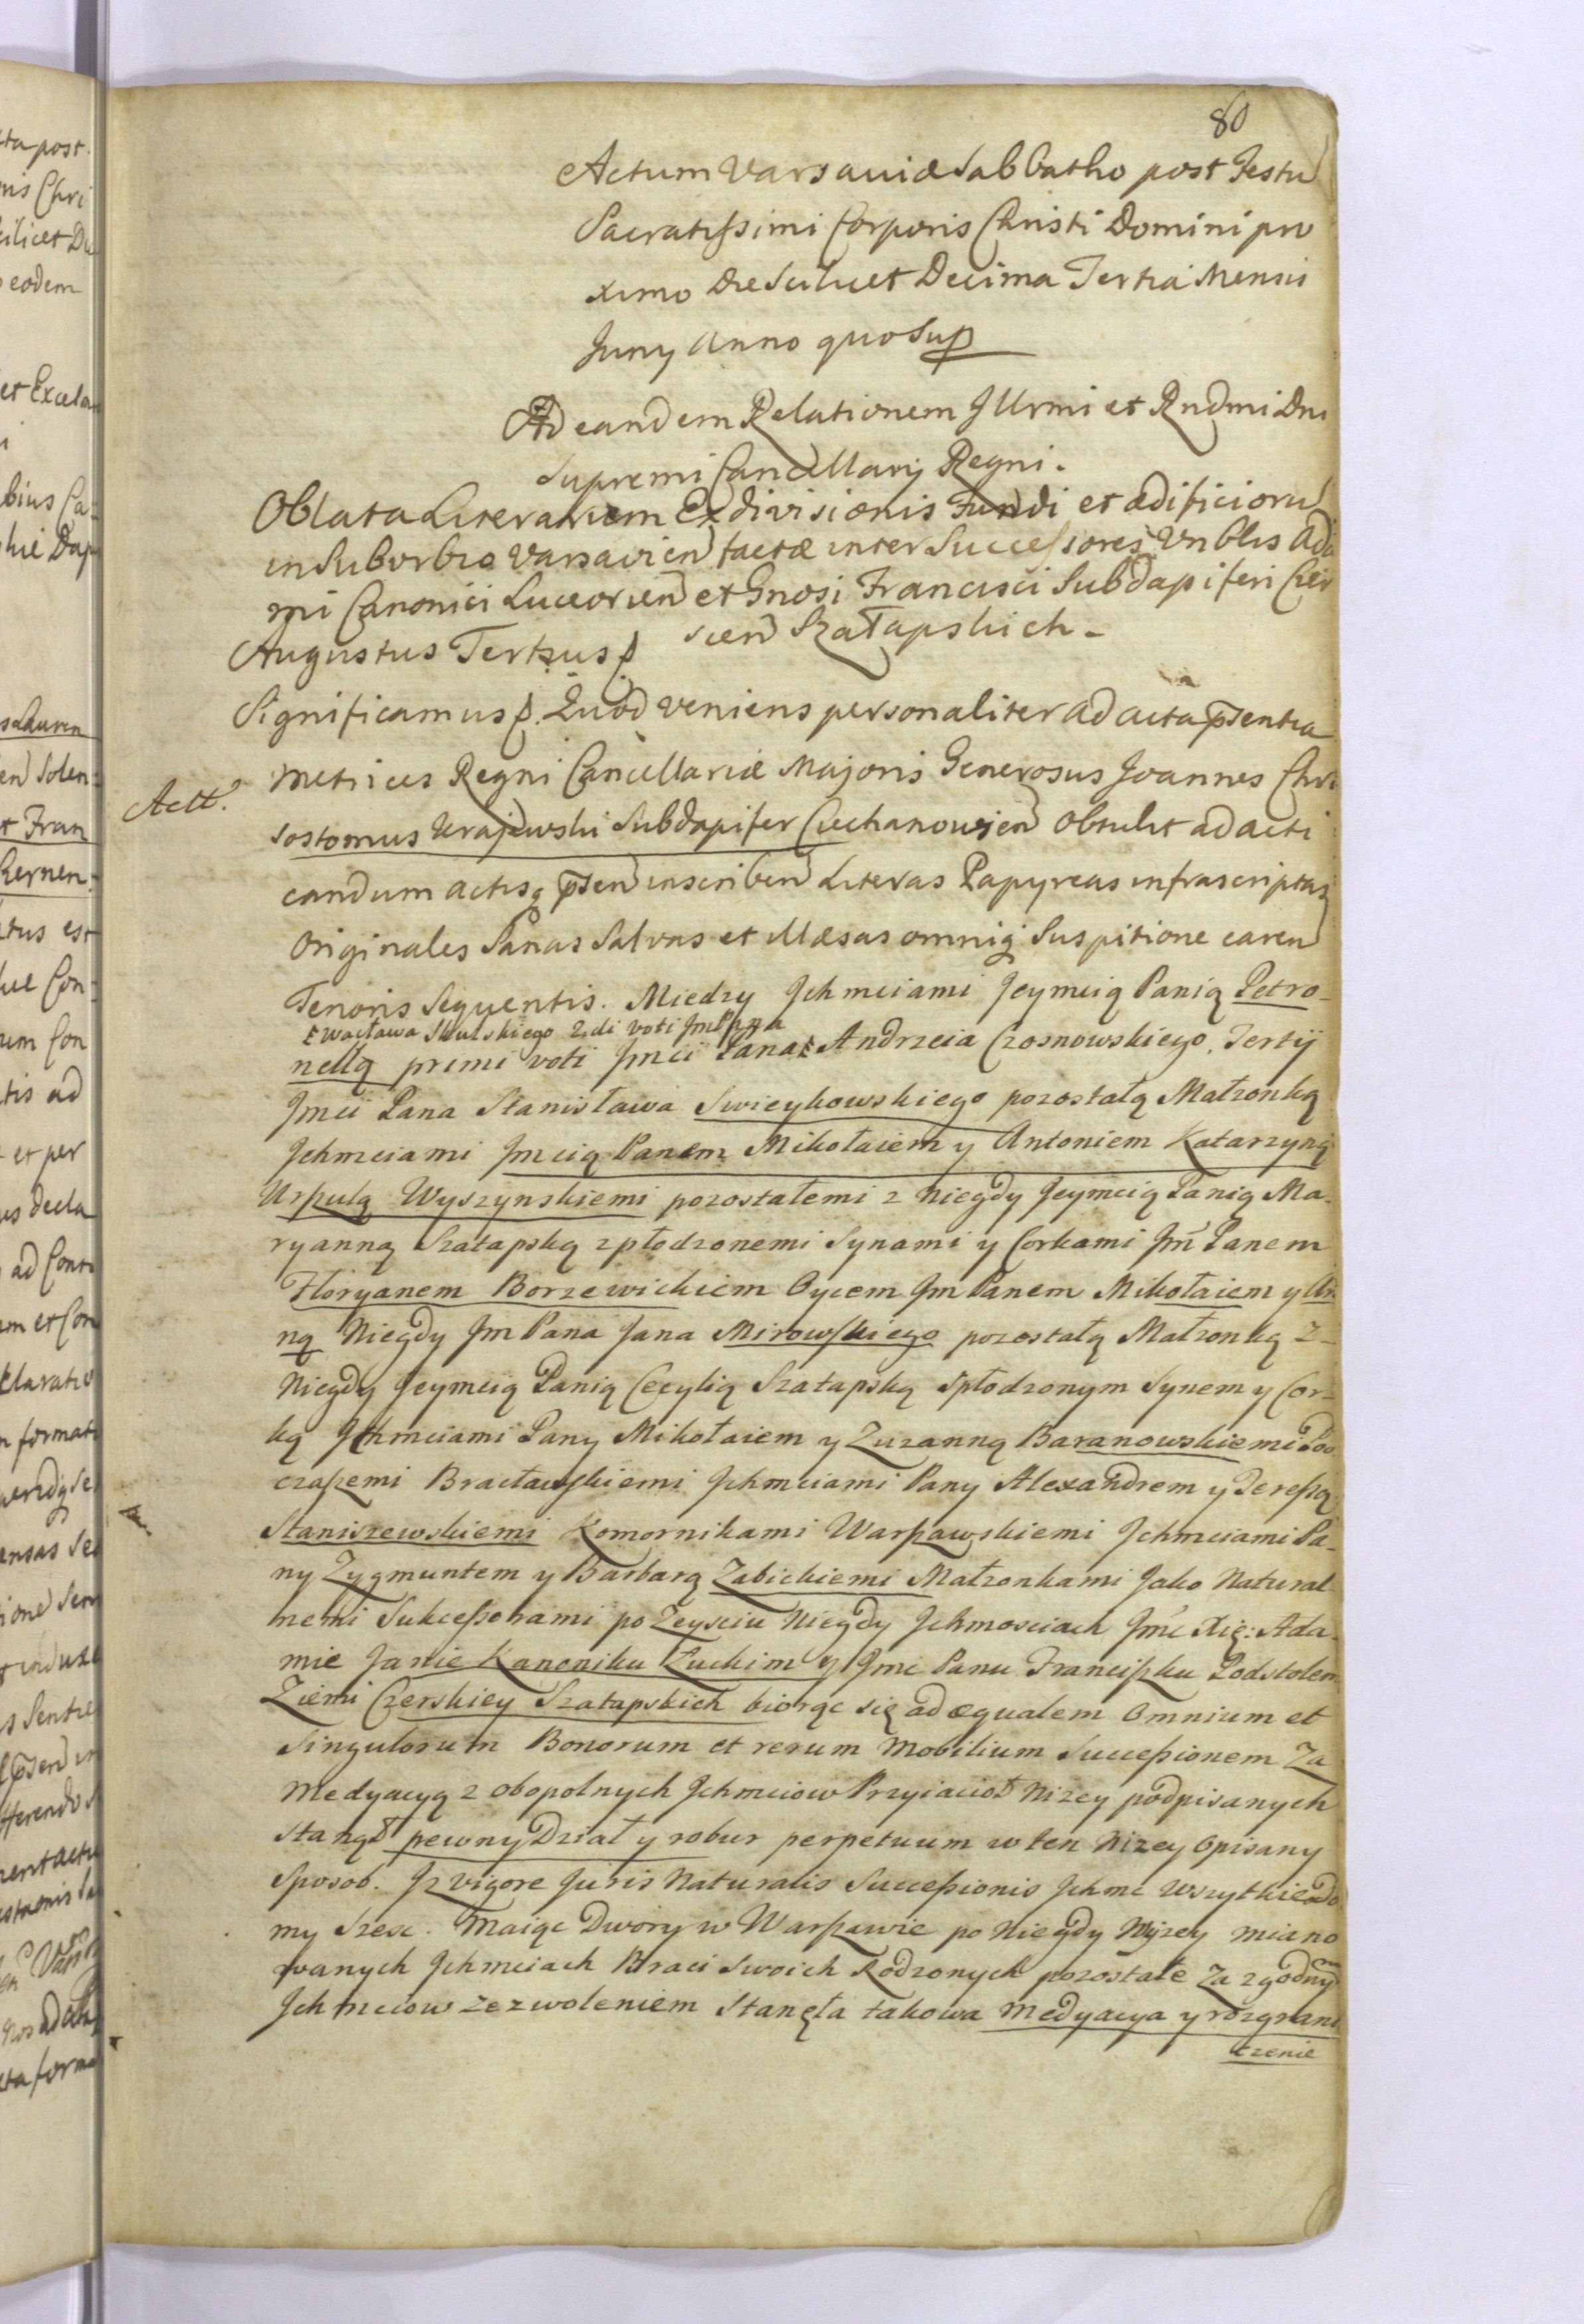 80
Actum Varsaviæ Sabbatho post Festu
Sacratissimi Corporis Christi Domini pro
ximo Die Scilicet Decima Tertia Mensis
Juny Anno quo Sup
Ad eandem Relationem Illrmi et Rndmi Dni
Supremi Cancellarij Regni.
Oblata Literarum Exdivisionis Fundi et ædificioru
in Suburbio Varsavien factæ inter Successores Vnblis Ada
mi Canonici Luceorien et Gnosi Francisci Subdapiferi Czer
scen Szałapskich.
Augustus Tertius
Significamus Quod veniens personaliter ad acta psentia
Metrices Regni Cancellariæ Majoris Generosus Joannes Chri
Actt.
sostomus Krajewski Subdapifer Ciechanovien Obtulit ad acti
candum actisq psen inscriben Literas Papyreas infrascriptas
Originales Sanas Salvas et Illæsas omniq Suspitione caren
Tenoris Sequentis. Miedzy Jchmciami Jeymcią Panią Petro-
Wacława Skulskiego 2di voti JmPna
nellą primi voti Jmci Pana Andrzeia Czosnowskiego, Tertij
Jmci Pana Stanisława Swieykowskiego pozostałą Małzonką
Jchmciami Jmcią Panem Mikołaiem y Antoniem Katarzyną
Urszulą Wyszynskiemi pozostałemi z niegdy Jeymcią Panią Ma-
ryanną Szałapską zpłodzonemi Synami y Corkami Jm Panem
Floryanem Borzewickiem Oycem Jm Panem Mikołaiem y An
ną Niegdy Jm Pana Jana Mirowskiego pozostałą Małzonką z-
Niegdy Jeymcią Panią Cecylią Szałapską Spłodzonym Synem y Cor-
ką Jchmciami Pany Mikołaiem y Zuzanną Baranowskiemi Pod
czaszemi Bracławskiemi Jchmciami Pany Alexandrem y Teressą
Staniszewskiemi Komornikami Warszawskiemi Jchmciami Pa-
ny Zygmuntem y Barbarą Zabickiemi Małzonkami Jako Natural-
nemi Sukcessorami po Zeysciu Niegdy Jchmosciach Jmc Xię: Ada-
mie Janie Kanoniku Łuckim y Jmc Panu Franciszku Podstolem
Ziemi Czerskiey Szałapskich biorąc się ad æqualem Omnium et
Singulorum Bonorum et rerum Mobilium Successionem Za
Medyacyą z obopolnych Jchmciow Przyiacioł Nizey podpisanych
Stanął pewny Dział y robur perpetuum w ten Nizey Opisany
Sposob. Jz vigore Juris Naturalis Successionis Jchmc wszytkie Do
my Szesc. Maiąc Dwory w Warszawie po Niegdy Wyzey miano
wanych Jchmciach Braci Swoich Rodzonych pozostałe Za zgodnym
Jchmciow zezwoleniem Stanęła takowa Medyacya y rozgrani
czenie